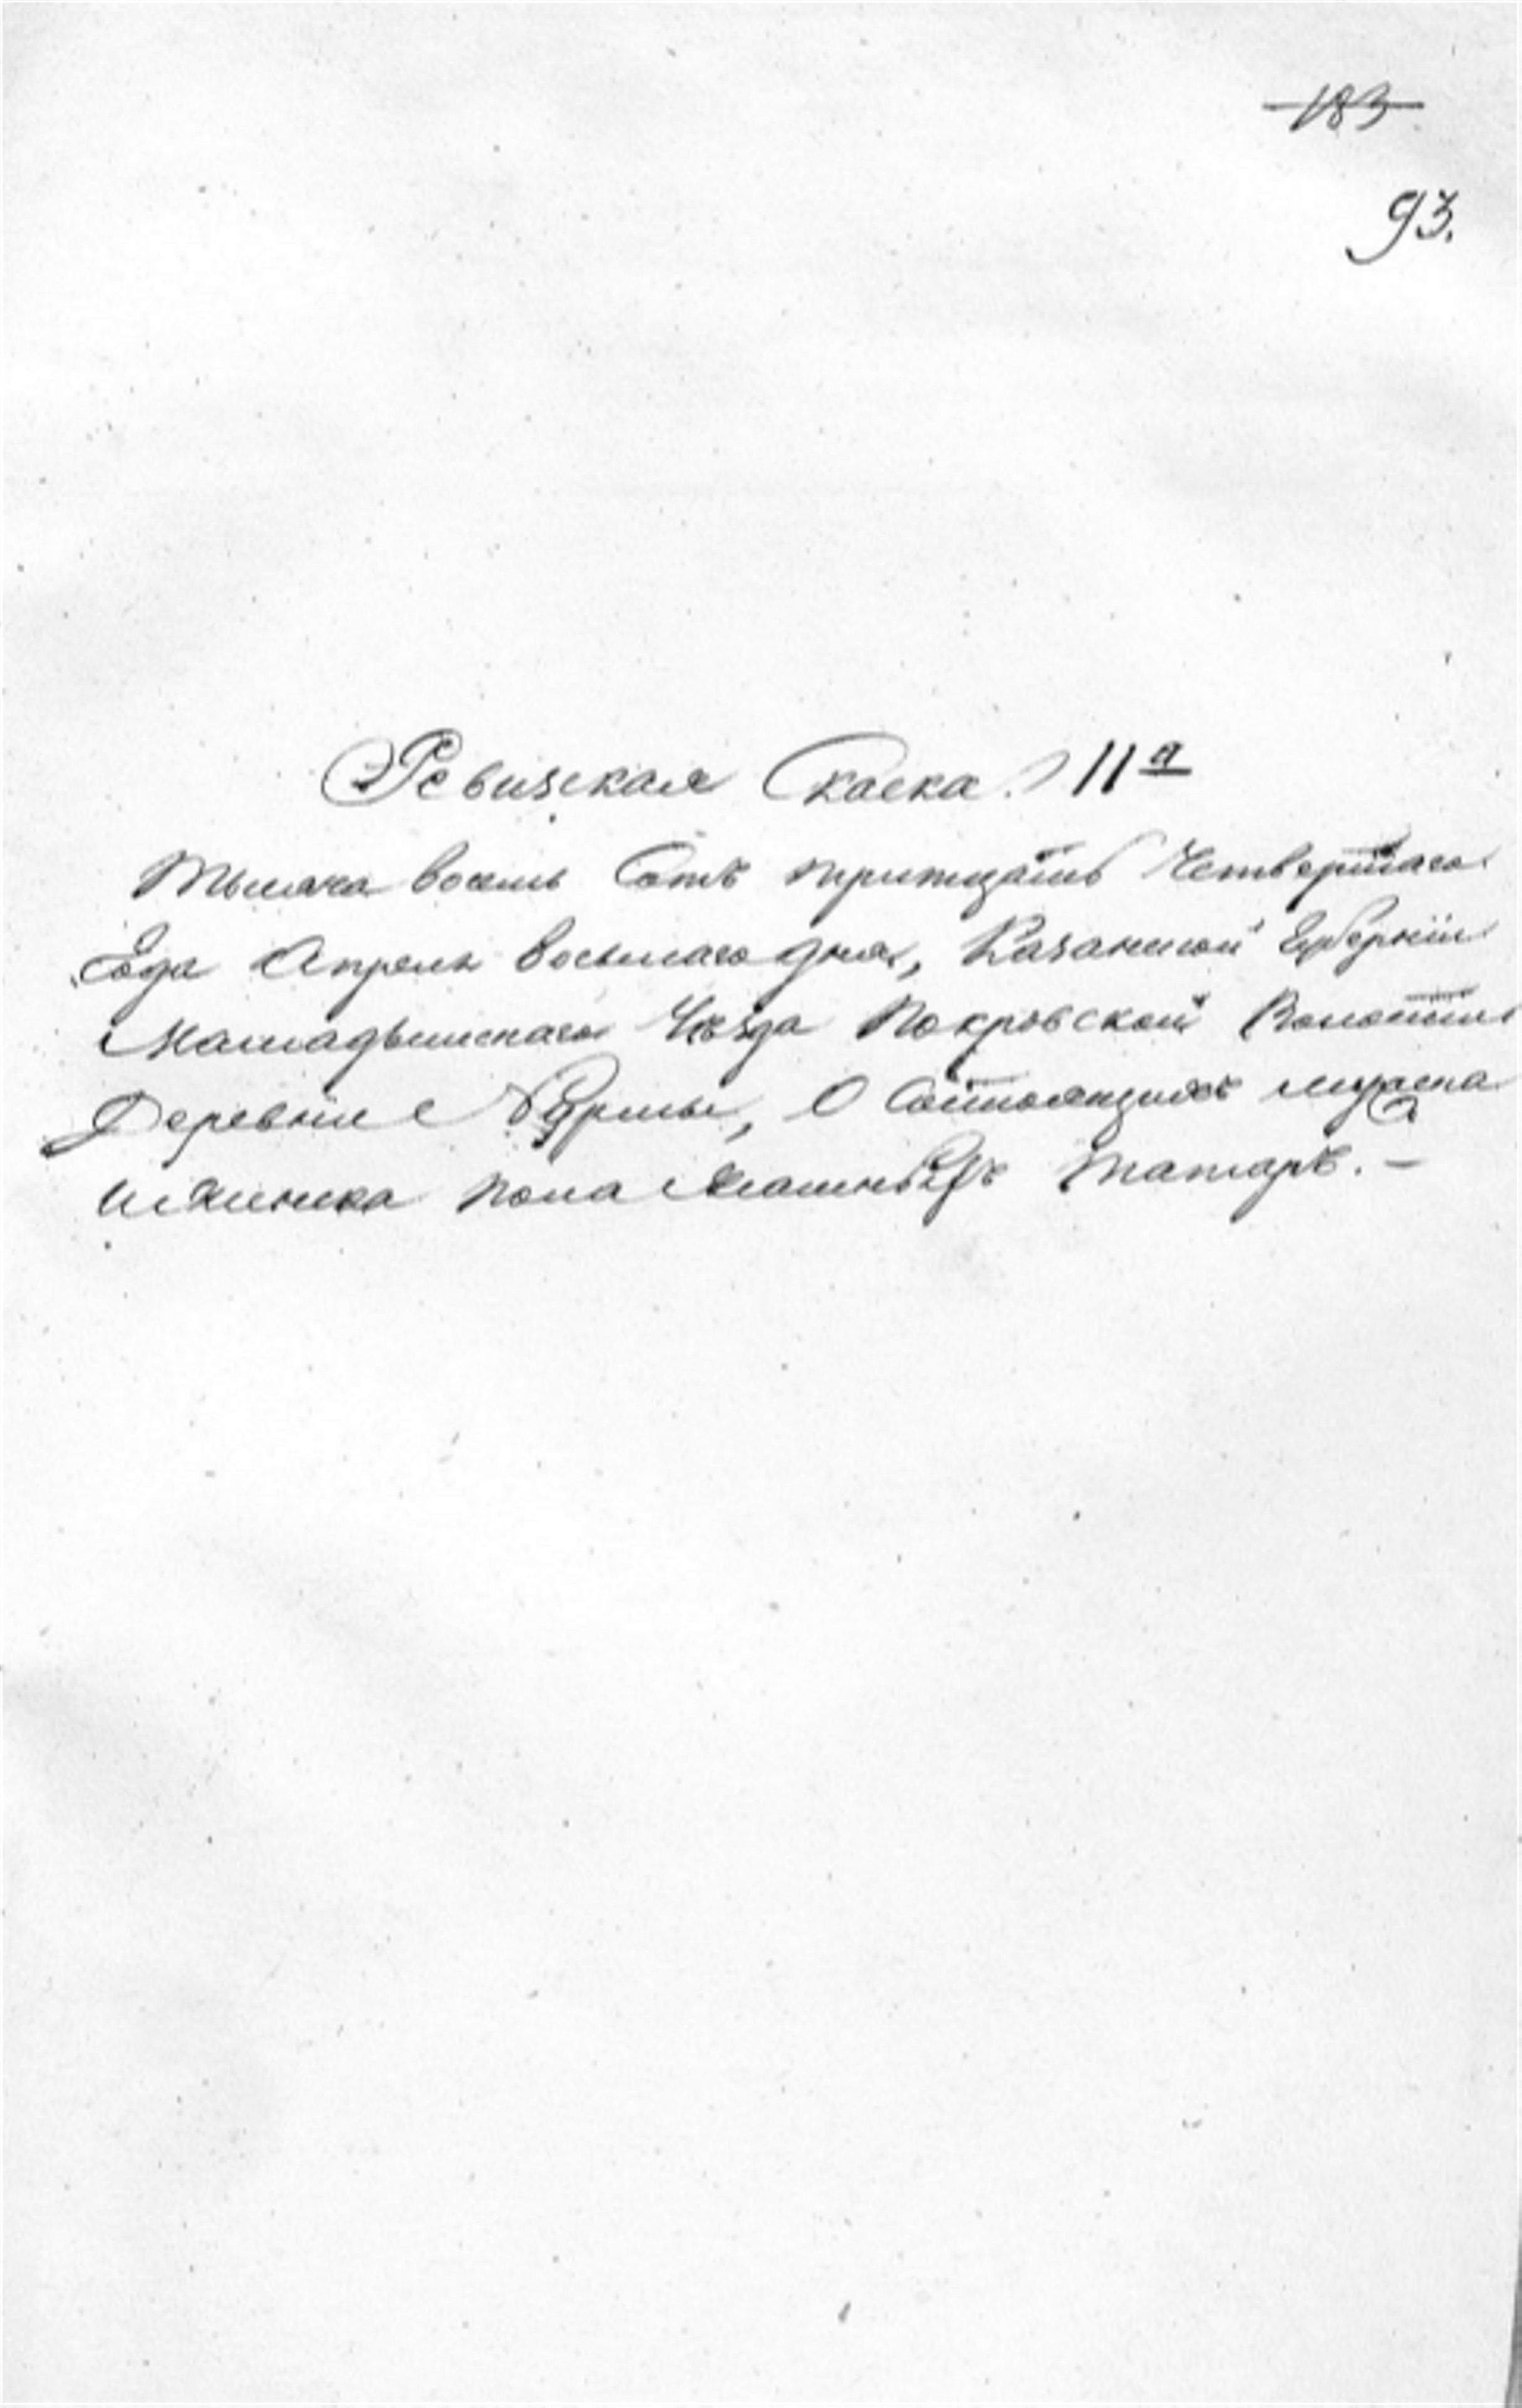 183
93.
Ревизская Скаска. 11я
Тысяча восемь Сотъ тритцать Четвертаго
Года Апреля восьмаго дня, Казанской Губернiи
Мамадышскаго Уѣзда Покровской Волости
Деревни Нурмы, О Состоящихъ мужеска
и женска пола Ясашныхъ Татаръ. -